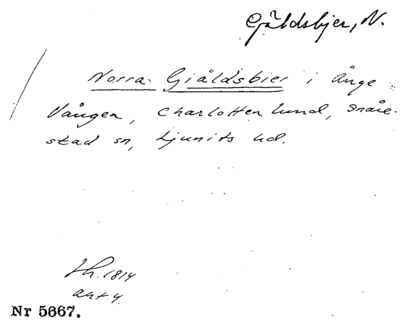 Gäldsbjer, N.
Norra Giäldsbier i Änge
Vången, Charlottenlund, Snåre-
stad sn, Ljunits hd.
Lh. 1814
akt 4.
Nr 5667.